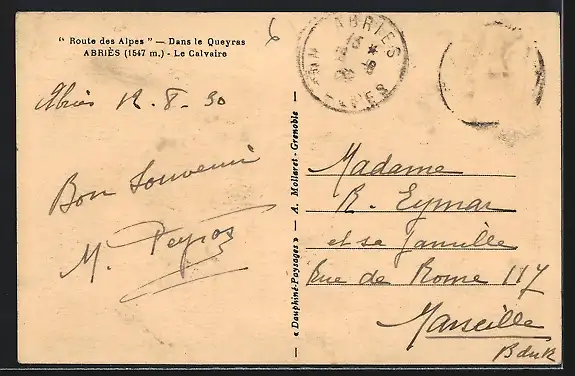 " Route des Alpes " — Dans le Queyras
ABRIÈS (1547 m.) - Le Calvaire
6
Abriès 12. 8. 30
Bon Souvenir
M. Peyras
« Dauphiné-Paysages » — A. Mollaret - Grenoble
ABRIÈS
ALPES
Madame
R. Eymar
et sa famille
Rue de Rome 117
Marseille
B du R